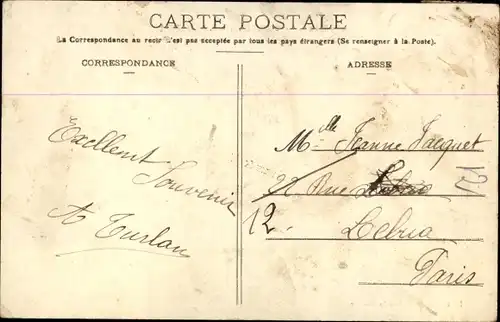 CARTE POSTALE
La Correspondance au recto n'est pas acceptée par tous les pays étrangers (Se renseigner à la Poste).
CORRESPONDANCE
ADRESSE
Excellent
Souvenir
Mlle Jeanne Jacquet
22 Rue
12
Paris